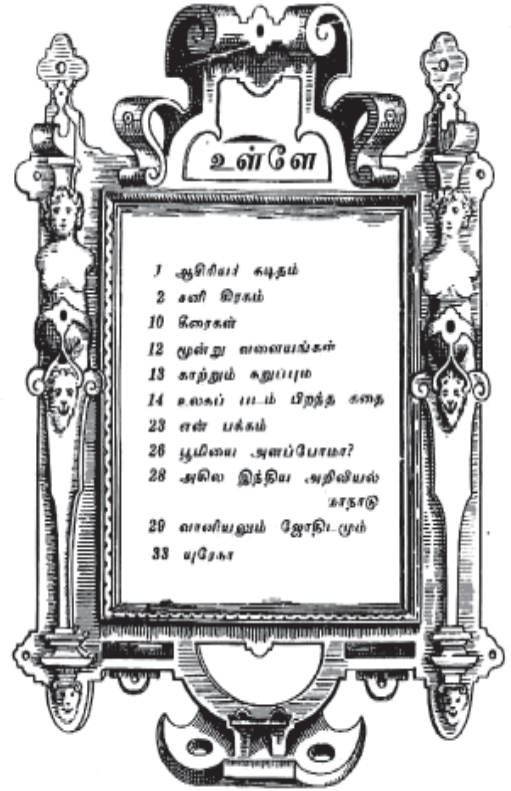 உள்ளே
1 ஆசிரியர் கடிதம்
2 சனி கிரகம்
10 கீரைகள்
12 மூன்று வளையங்கள்
13 காற்றும் கறுப்பும்
14 உலகப் படம் பிறந்த கதை
23 என் பக்கம்
26 பூமியை அளப்போமா?
28 அகில இந்திய அறிவியல்
மாநாடு
29 வானியலும் ஜோதிடமும்
33 யுரேகா